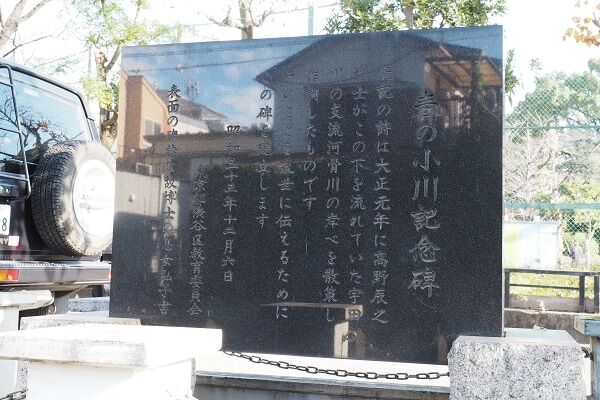 春の小川記念碑
表記の詩は大正元年に高野辰之
博士がこの下を流れていた宇田
川の支流河骨川の岸べを散策し
作詞したものです
後世に伝えるために
この碑を建立します
昭和五十三年十二月六日
東京都渋谷区教育委員会
表面の
故博士の
書
8